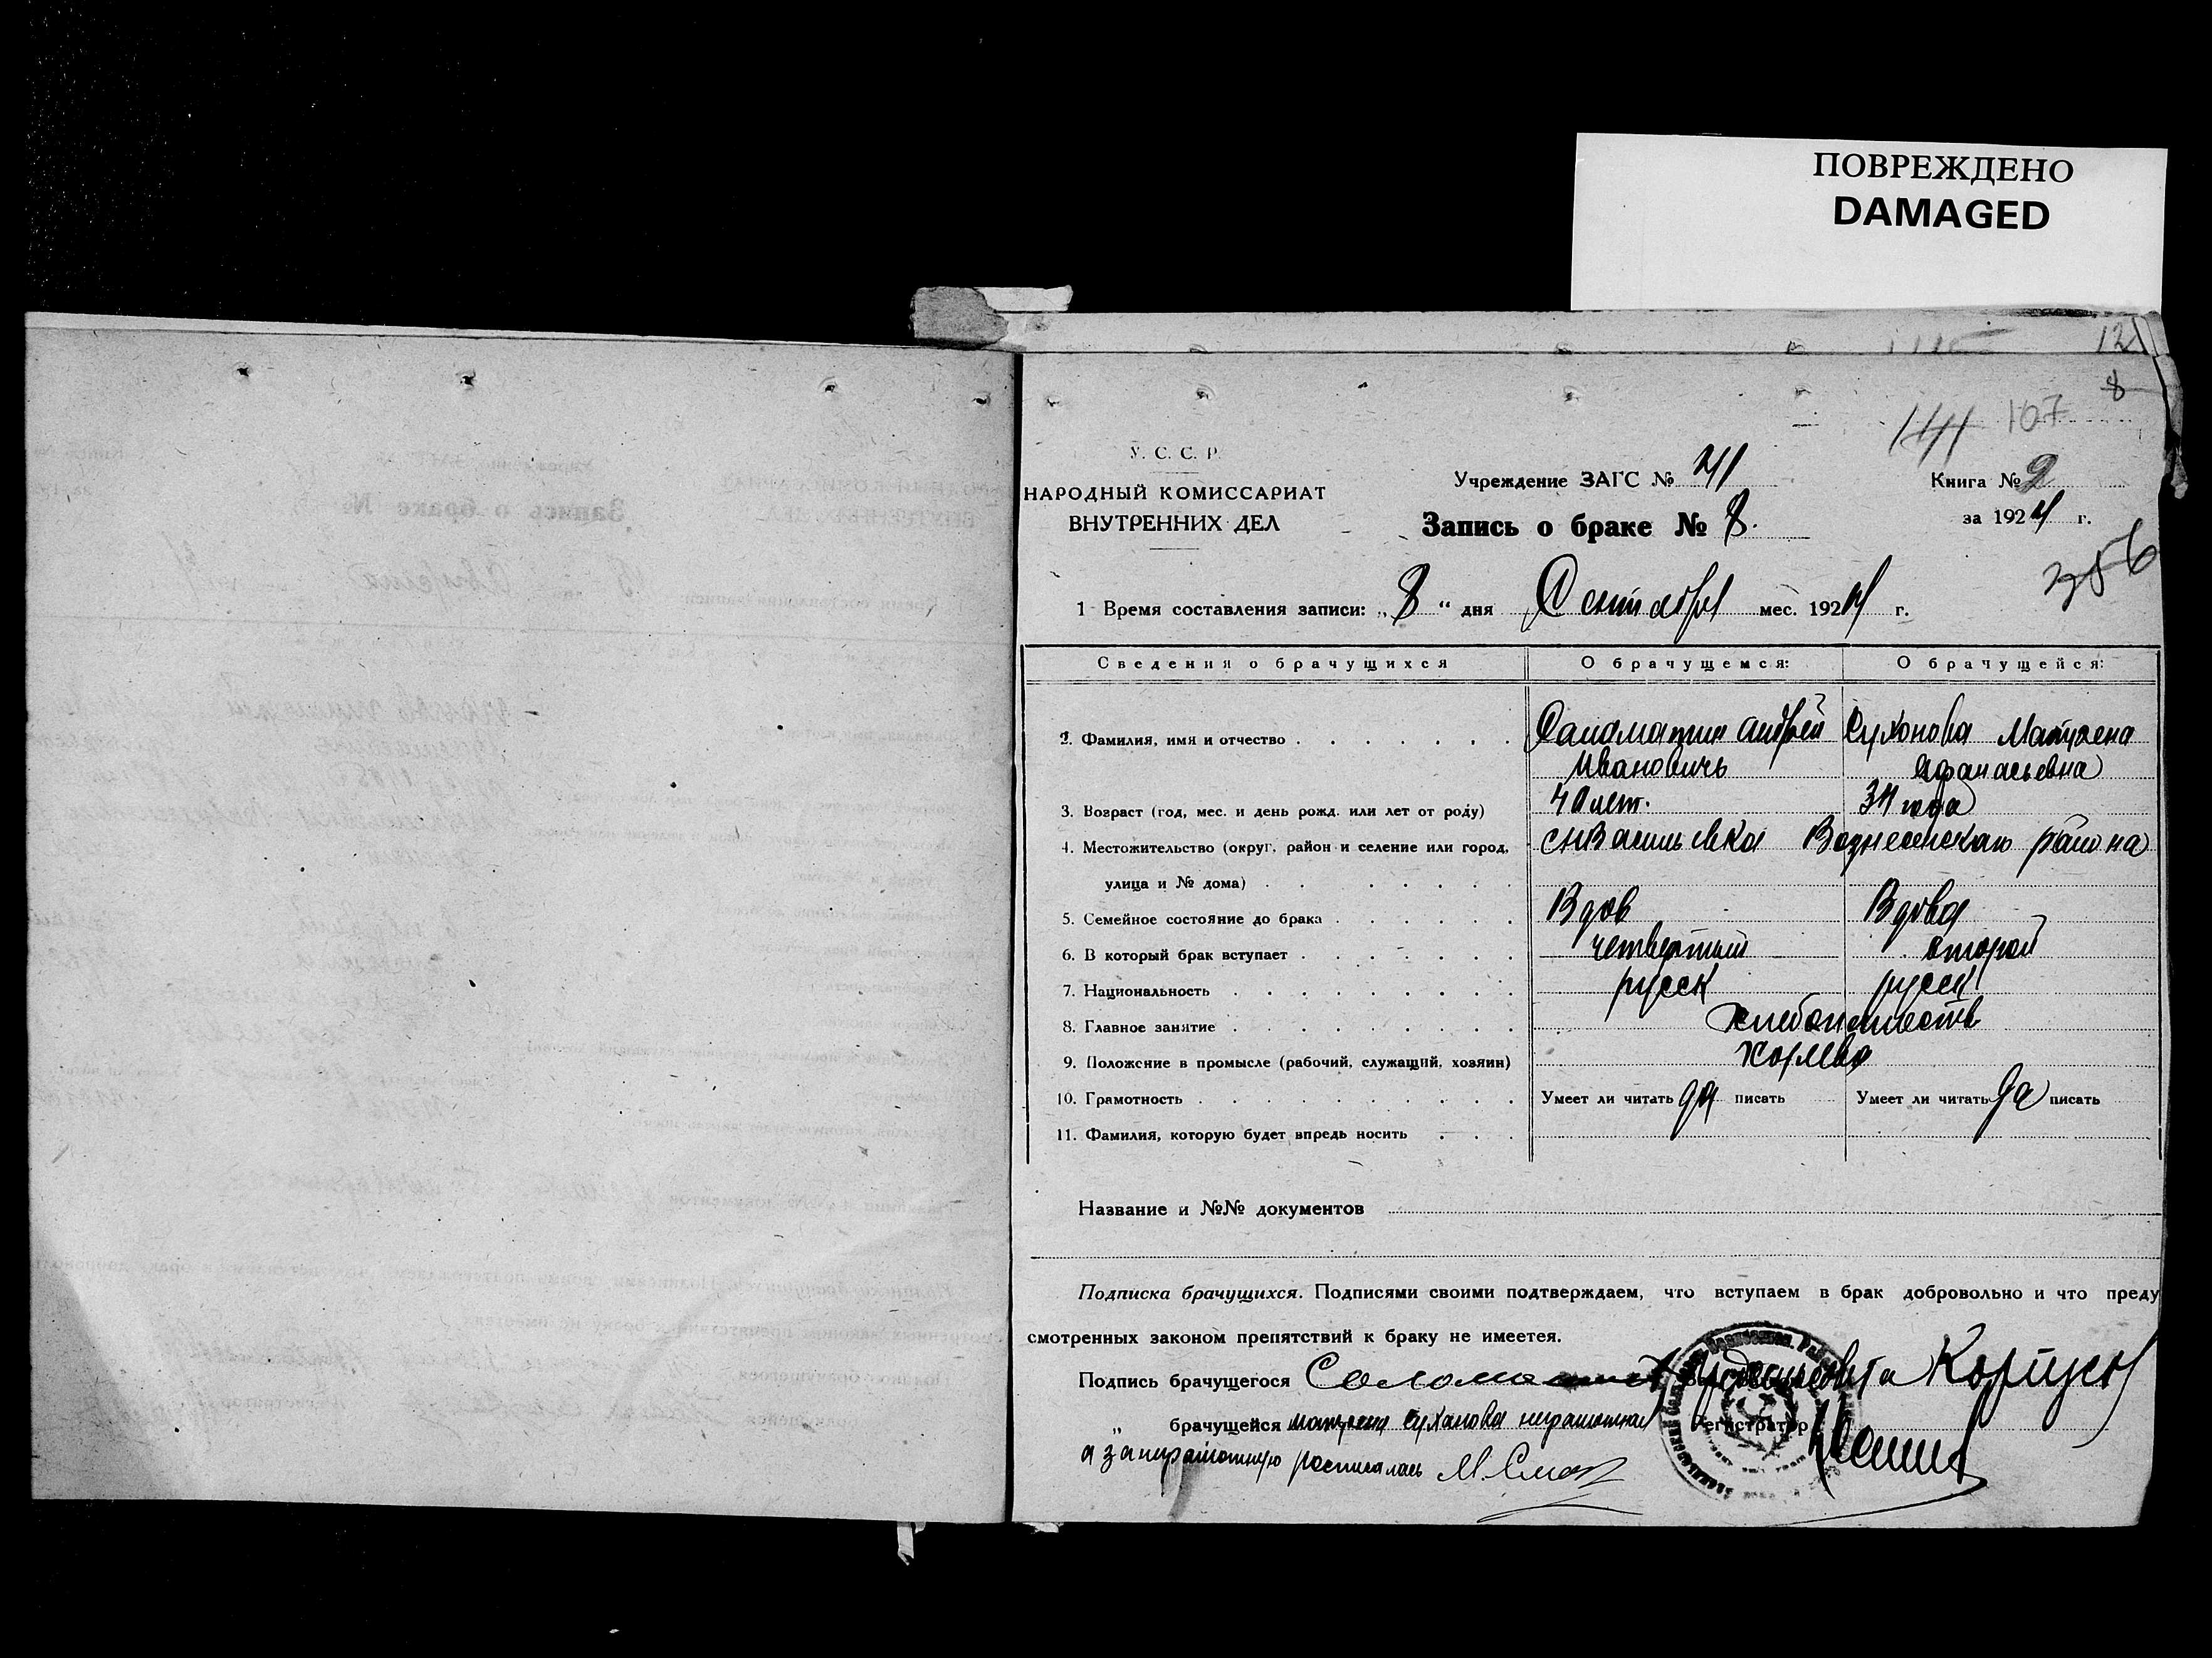 ПОВРЕЖДЕНО
DAMAGED
121
8
107
У. С. С. Р.
НАРОДНЫЙ КОМИССАРИАТ
ВНУТРЕННИХ ДЕЛ
Учреждение ЗАГС №
Книга № 2
Запись о браке № 8.
за 1924 г.
356
1 Время составления записи: „8“ дня Сентября мес. 1924 г.
Сведения о брачущихся О брачущемся: О брачущейся:
2. Фамилия, имя и отчество Саломатин Андрей Суханова Матрена
Ивановичь Афанасьевна
3. Возраст (год, мес. и день рожд. или лет от роду) 40 лет. 34 года
4. Местожительство (округ, район и селение или город, с Васильевка Вознесенскаго района
улица и № дома)
5. Семейное состояние до брака Вдов Вдова
6. В который брак вступает четвертый второй
7. Национальность русск русск
8. Главное занятие
9. Положение в промысле (рабочий, служащий, хозяин)
10. Грамотность Умеет ли читать да писать Умеет ли читать да писать
11. Фамилия, которую будет впредь носить
Название и №№ документов
Подписка брачущихся. Подписями своими подтверждаем, что вступаем в брак добровольно и что преду
смотренных законом препятствий к браку не имеетея.
Подпись брачущегося
„ брачущейся Матрена Суханова неграмотная Регистратор
а за неграмотную росписалась